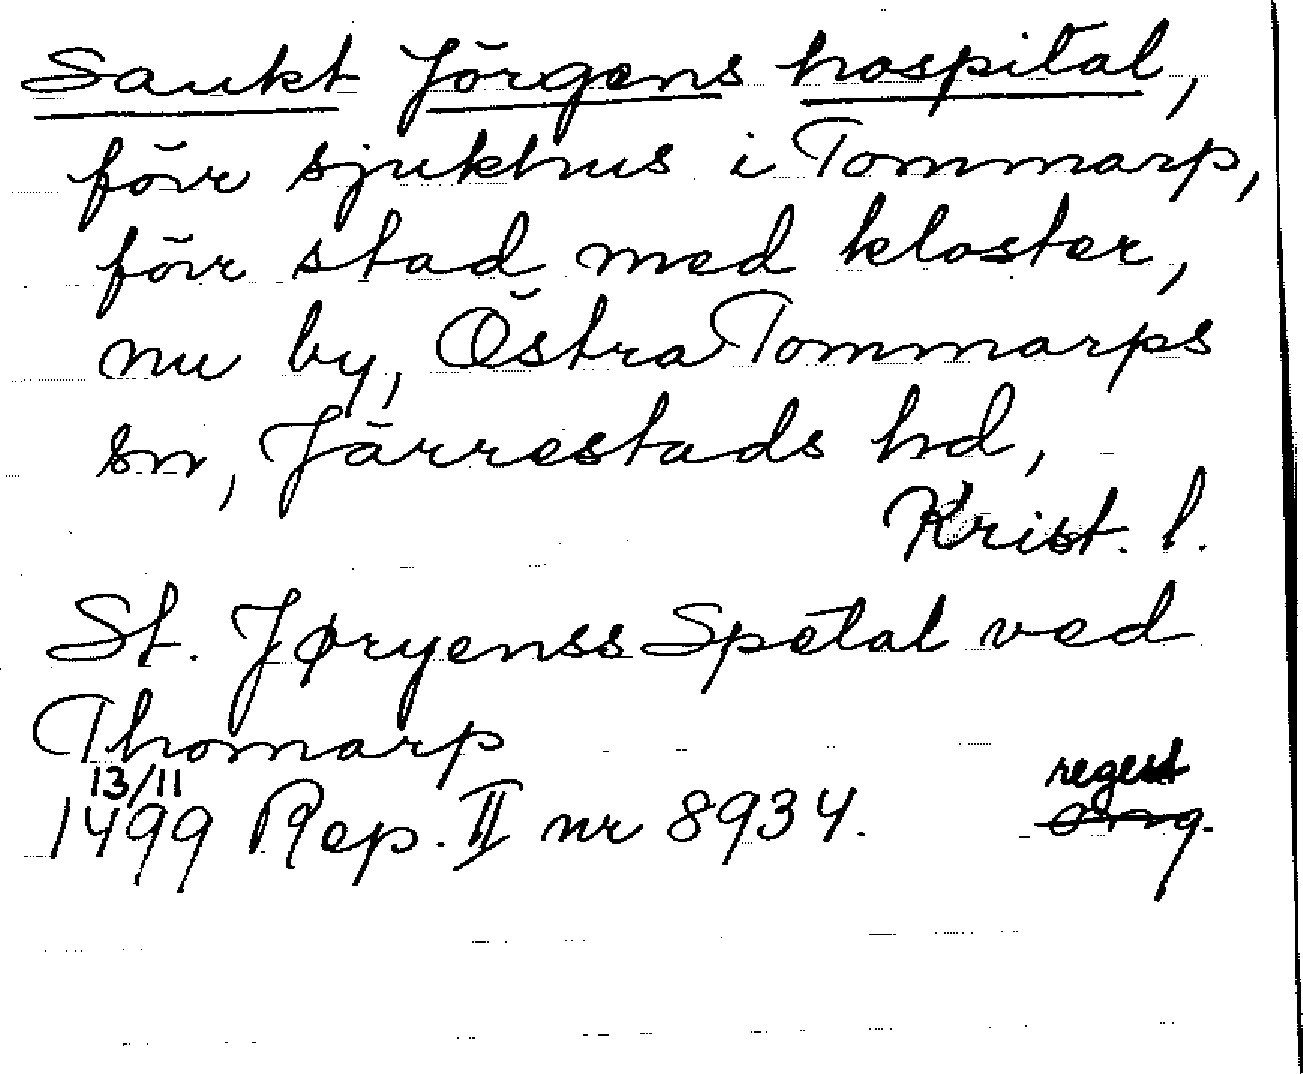 Sankt Jörgens hospital,
förr sjukhus i Tommarp,
förr stad med kloster,
nu by, Östra Tommarps
sn, Järrestads hd,
Krist. l.
St. Jøryenss Spetal ved
Thomarp
13/11
1499 Rep. II nr 8934.
regest